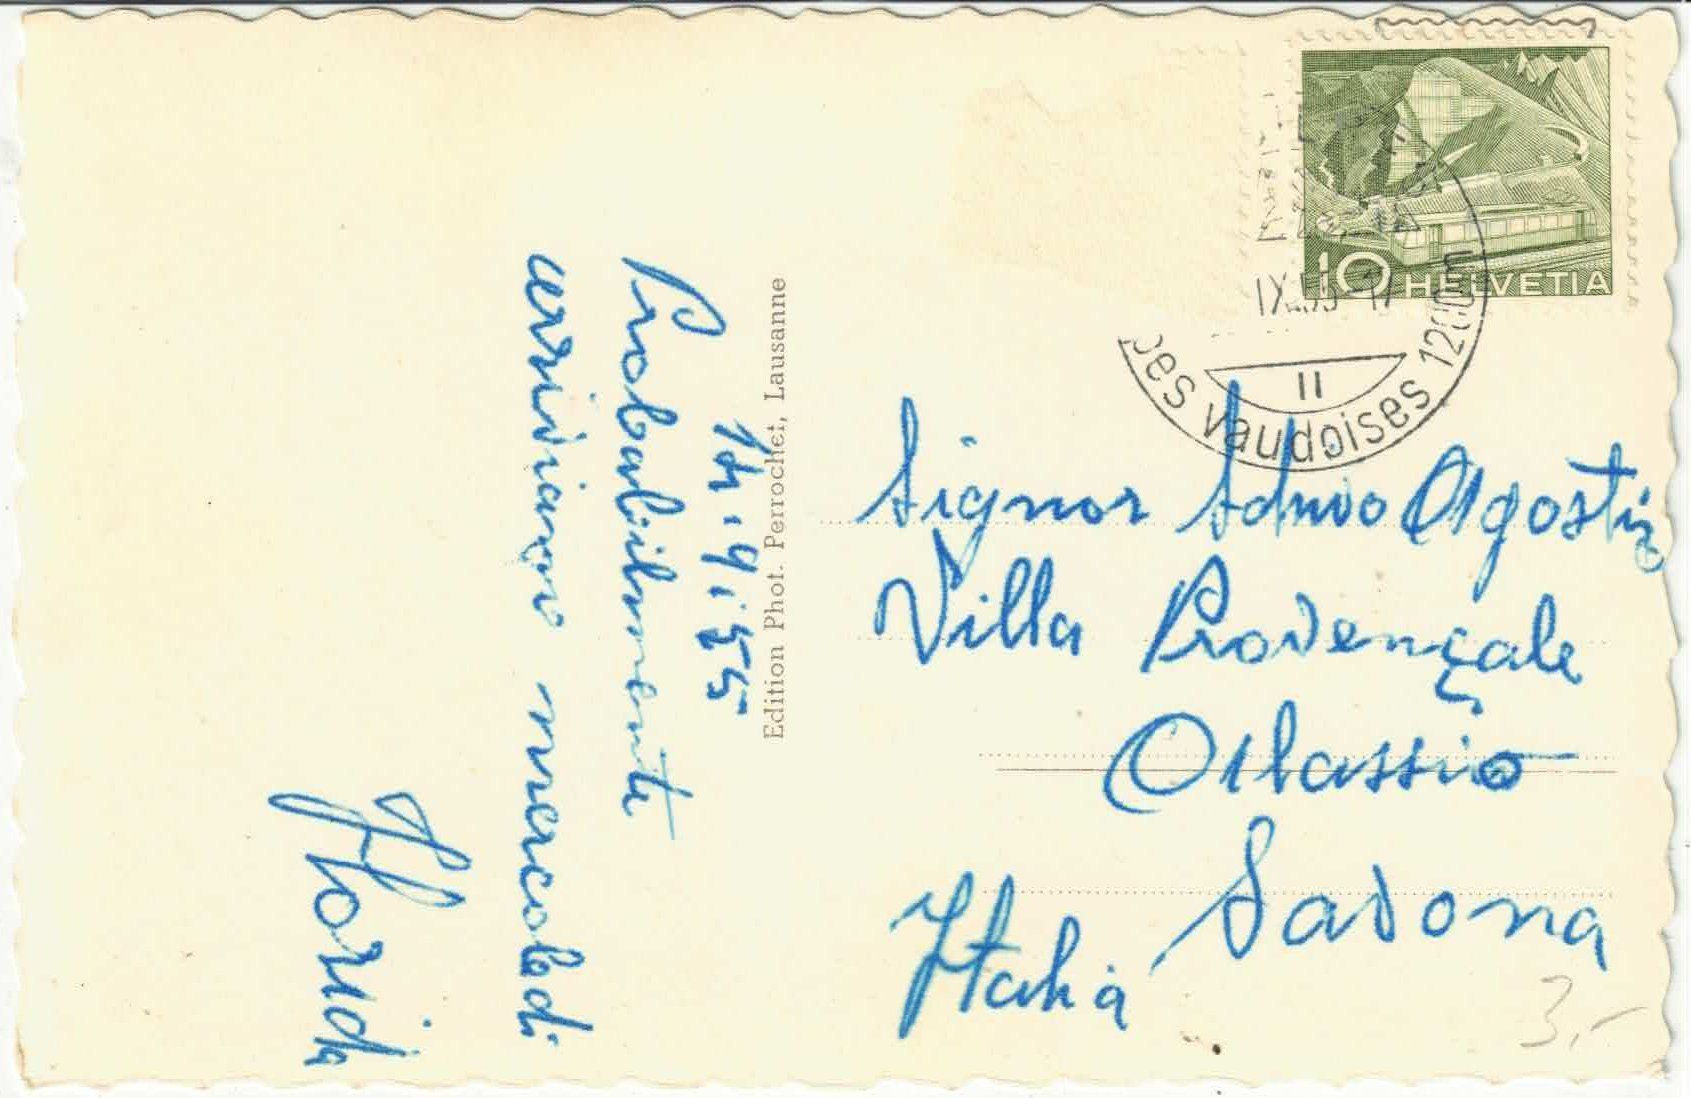 14.9.55
Probabilmente
arriviamo mercoledi
Florida
Edition Phot. Perrochet, Lausanne
10 HELVETIA
IX.55-17
II
pes vaudoises 1200m
Signor Agosti
Villa Provençale
Alassio
Savona
Italia
3,-